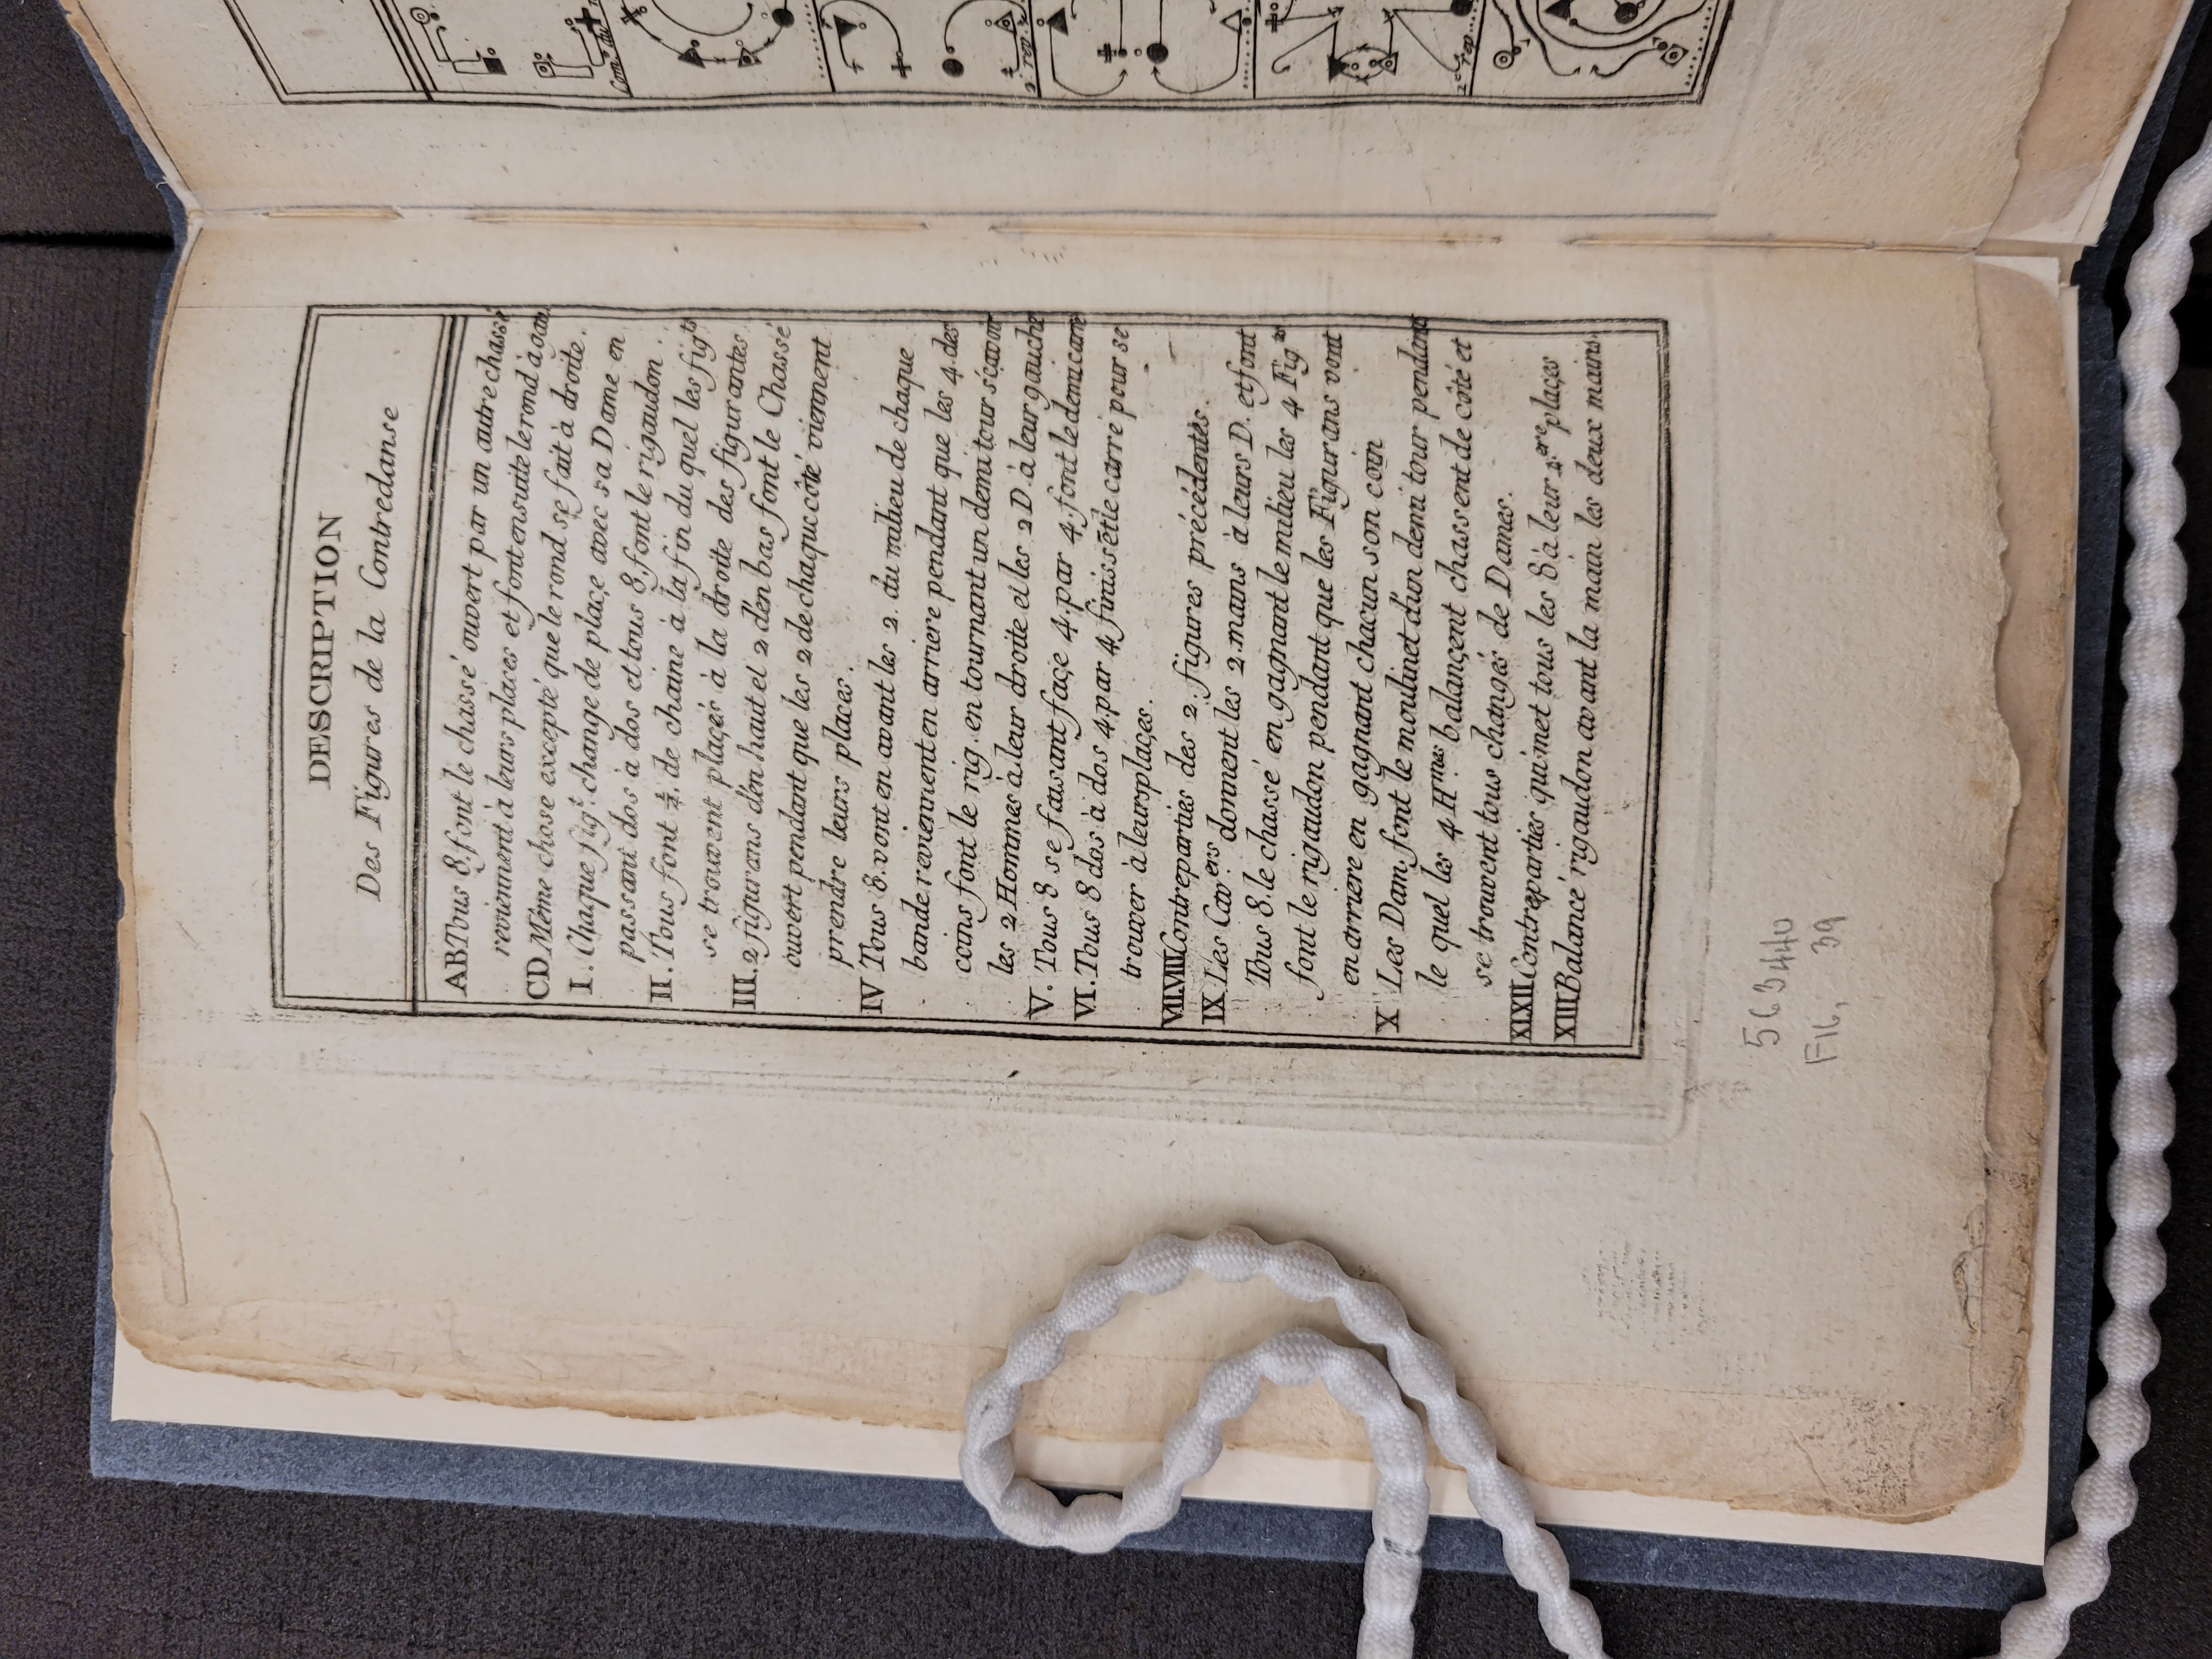 DESCRIPTION
Des Figures de la Contredanse
AB Tous 8. font le chassé ouvert par un autre chassé
reviennent à leurs places et font ensuite le rond à gau.
CD Même chose excepté que le rond se fait à droite.
I. Chaque fig.t change de plaçe avec sa Dame en
passant dos à dos et tous 8. font le rigaudon.
II. Tous font de chaine à la fin du quel les fig.ts
se trouvent plaçés à la droite des figurantes
III. 2 figurans d'en haut et 2 d'en bas font le Chassé
ouvert pendant que les 2 de chaque côté viennent
prendre leurs places.
IV Tous 8. vont en avant les 2. du milieu de chaque
bande reviennent en arriere pendant que les 4. des
coins font le rig. en tournant un demi tour sçavoir
les 2 Hommes à leur droite et les 2 D. à leur gauche
V. Tous 8 se faisant façe 4. par 4. font le demi carré
VI. Tous 8 dos à dos 4. par 4 finissẽt le carré pour se
trouver à leurs plaçes.
VII. VIII Contreparties des 2. figures précédentes.
IX Les Cav.ers donnent les 2. mains à leurs D. et font
Tous 8. le chassé en gagnant le milieu les 4 Fig.tes
font le rigaudon pendant que les Figurans vont
en arriere en gagnant chacun son coin
X Les Dam. font le moulinet d'un demi tour pendant
le quel les 4 H.mes balançent chassent de côté et
se trouvent tous changés de Dames.
XI. XII Contreparties qui met tous les 8 à leur 1.ere places
XIII Balancé rigaudon avant la main les deux mains.
563440
F16, 39
2.e rep.
2.e rep.